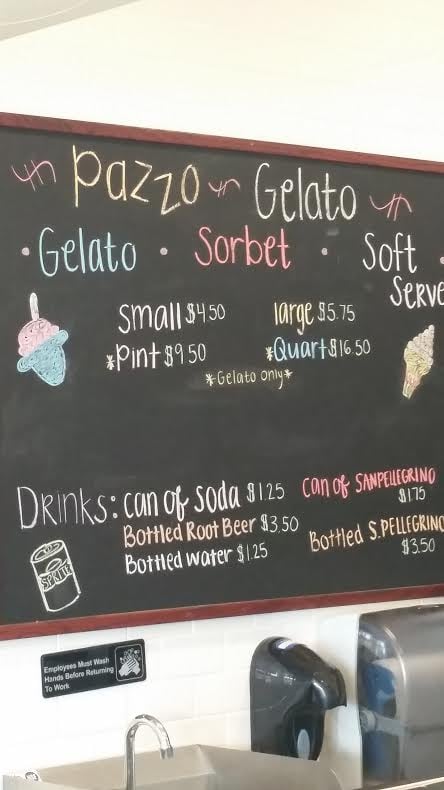 Pazzo Gelato
Gelato • Sorbet • Soft Serve
small $4.50 large $5.75
*Pint $9.50 *Quart $16.50
*Gelato only*
Drinks: can of soda $1.25 can of SANPELLEGRINO $1.75
Bottled Root Beer $3.50 Bottled S.PELLEGRINO $3.50
Bottled water $1.25
SPRITE
Employees Must Wash
Hands Before Returning
To Work